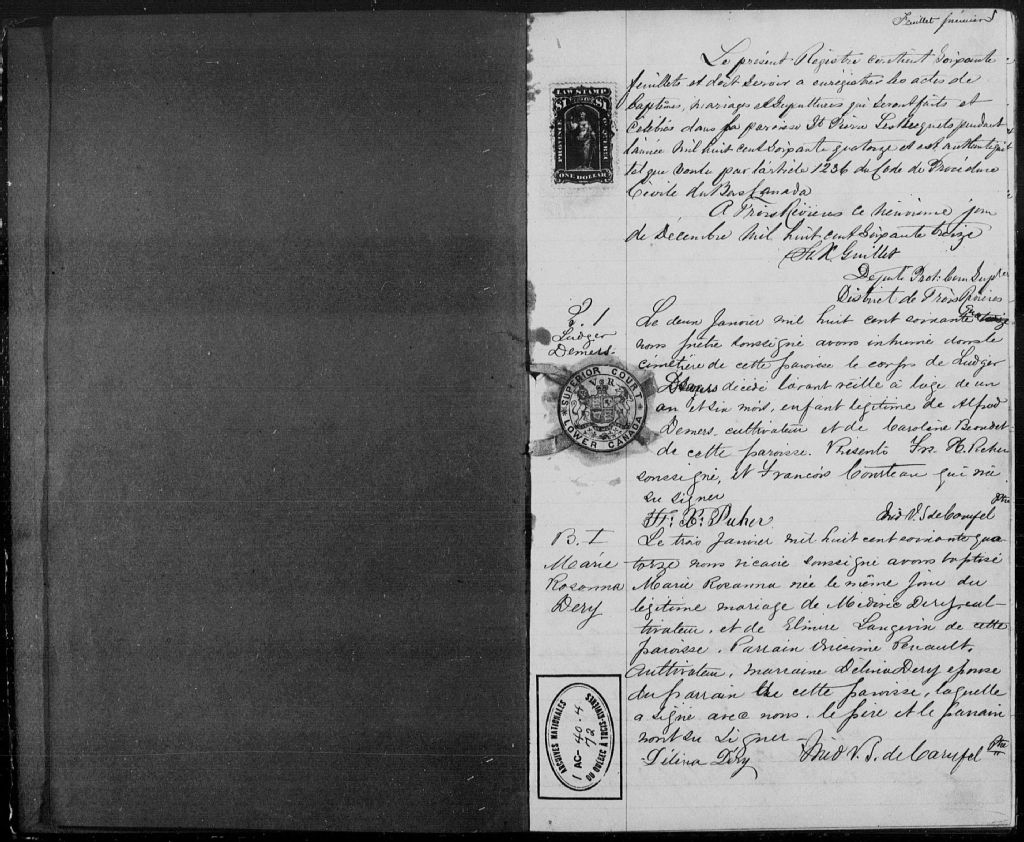 Feuillet premier
Le présent Régistre contient Soixante
feuillets et doit servir a enrégistrer les actes de
baptêmes, mariages et Sepultures qui seront faits et
célébrés dans la paroisse St Pierre Les Becquets pendant
l'année Mil huit cent Soixante quatorze et est authentiqué
tel que voulu par l'article 1236 du Code de Procédure
Civile du Bas Canada
A Trois Rivières ce neuvième jour
de Décembre Mil huit cent Soixante treize
Guillet
Député Prot. Cour Supre
District de Trois Rivières
LAW STAMP
$1 $1
PROVINCE QUEBEC
ONE DOLLAR
S. 1
Ludger
Demers
Le deux Janvier mil huit cent soixante
nous prêtre soussigné avons inhumé dans le
cimetière de cette paroisse le corps de Ludger
Demers décédé l'avant veille à l'age de un
an et six mois, enfant légitime de Alfred
Demers cultivateur et de Caroline Beaudet
de cette paroisse. Présents Frs X. Pacher
soussigné, et François Courteau qui n'a
su signer
F. X. Pacher
ptre
V. S. de Carufel
SUPERIOR COURT
V R
LOWER CANADA
B. I
Marie
Rosanna
Dery
Le trois Janvier mil huit cent soixante qua
torze nous vicaire soussigné avons baptisé
Marie Rosanna née le même jour du
légitime mariage de Médéric Dery cul-
tivateur, et de Elmire Langevin de cette
paroisse. Parrain Onésime Perrault,
cultivateur, marraine Délina Dery épouse
du parrain de cette paroisse, laquelle
a signé avec nous. le père et le parrain
n'ont su signer
Délina Déry
V. S. de Carufel ptre
ARCHIVES NATIONALES
1 AC- 40.4
72
DU QUÉBEC À TROIS-RIVIÈRES